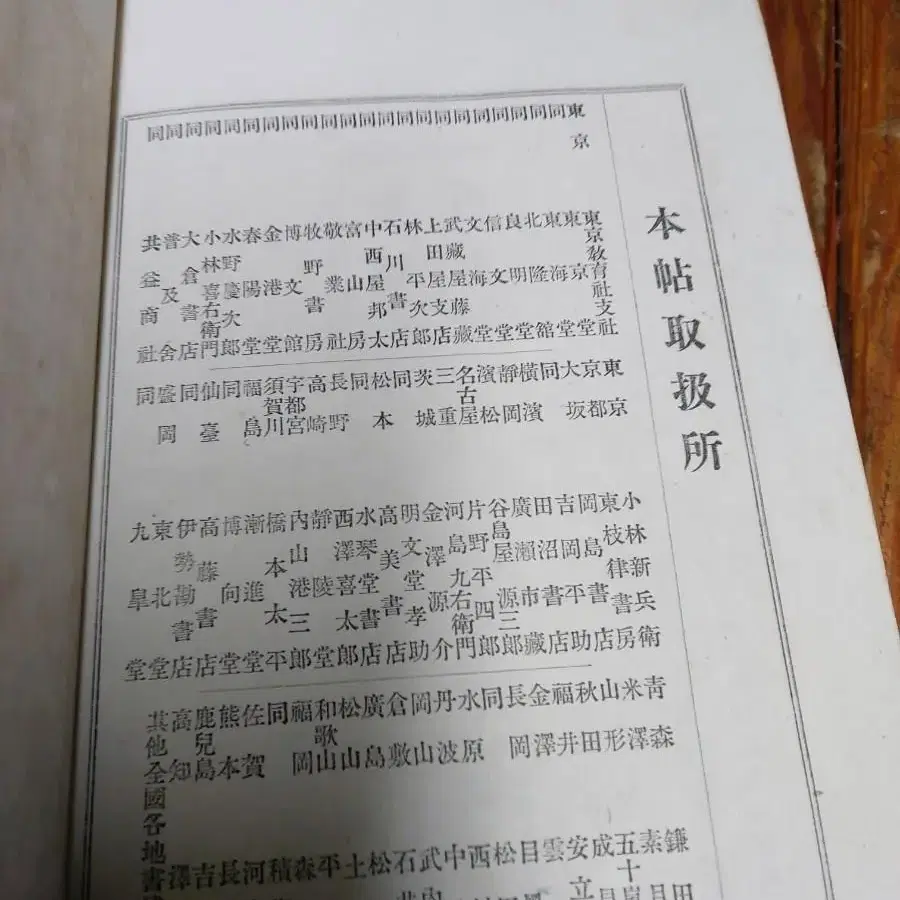 本帖取扱所
東京 東京教育社支社
同 東京堂
同 東海堂
同 北隆舘
同 良明堂
同 信文堂
同 文海堂
同 武藏屋藤藏
同 上田屋支店
同 林平次郎
同 石川書店
同 中西屋邦太
同 富山房
同 敬業社
同 牧野書房
同 博文館
同 金港堂
同 春陽堂
同 水野慶次郎
同 小林喜右衛門
同 大倉書店
同 普及舍
同 共益商社
東京 小林新兵衛
京都 東枝律書房
大坂 岡島書店
同 吉岡平助
橫濱 田沼書店
靜岡 廣瀨市藏
濱松 谷島屋源三郎
名古屋 片野平四郎
三重 河島九右衛門
茨城 金澤源介
同 明文堂孝助
松本 高美書店
同 水琴堂書店
長野 西澤喜太郎
高崎 靜陵堂
宇都宮 內山港三郎
須賀川 橋本太平
福島 漸進堂
同 博向堂
仙臺 高藤書店
同 伊勢勘書店
盛岡 東北堂
同 九皐堂
青森 鎌田
米澤 素
山形 五十嵐
秋田 成
福井 安立
金澤 雲
長岡 目
同 松
水原 西
丹波 中
岡山 武內
倉敷 石
廣島 松
松山 土
和歌山 平
福岡 森
同 積
佐賀 河
熊本 長
鹿兒島 吉
高知 澤
其他全國各地書